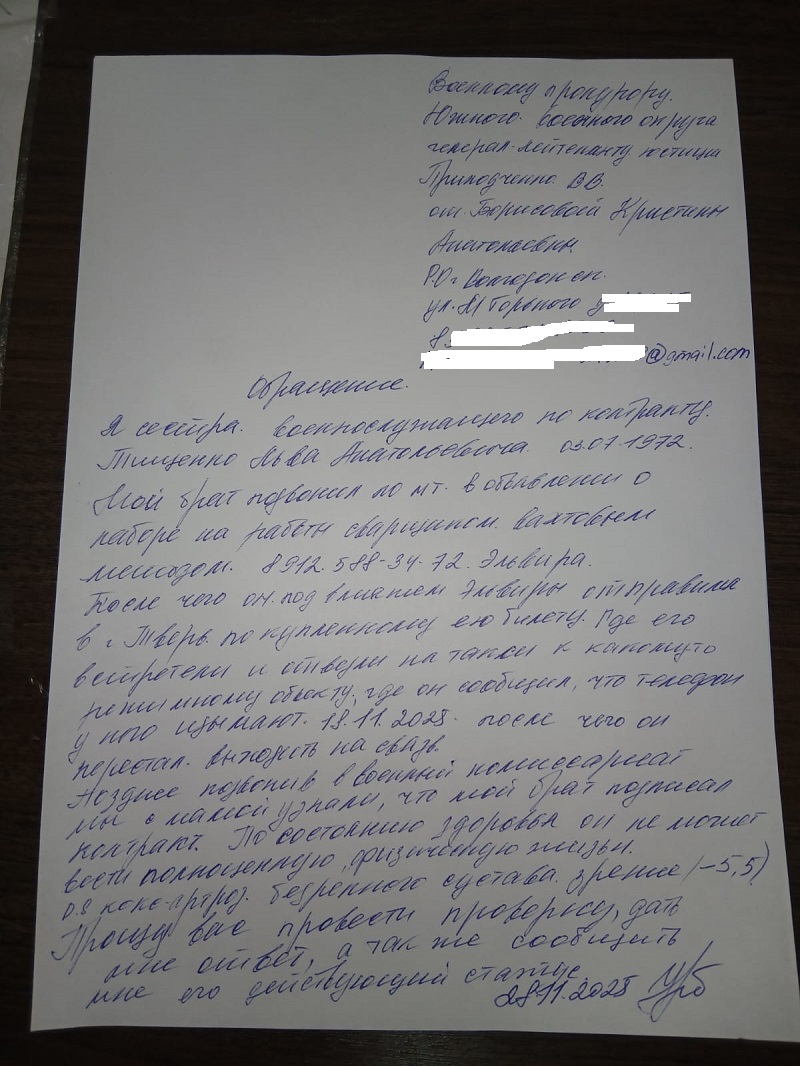 Военному прокурору.
Южного военного округа
генерал-лейтенанту юстиции
Приходченко. В.В.
от Борисовой Кристины
Анатольевны.
Р.О г Волгодонск.
ул. М Горького
8
@gmail.com
Обращение.
Я сестра. военнослужащего по контракту.
Тищенко Льва Анатольевича. 03.07.1972.
Мой брат позвонил по мт. в объявлении о
наборе на работы сварщиком. вахтовым
методом. 8912.588-34-72. Эльвира.
После чего он. под влиянием Эльвиры отправился
в г. Тверь. по купленному ею билету. Где его
встретели и отвезли на такси к какомуто
режимному обьекту, где он сообщил, что телефон
у него изымают. 19.11.2025. после чего он
перестал. выходить на связь.
Позднее позвонив в военный комиссариат
мы с мамой узнали, что мой брат подписал
контракт. По состоянию здоровья он не может
вести полноценную, физическую жизнь.
D.S кокс-артроз. бедренного сустава. зрение (-5,5)
Прошу вас провести проверку, дать
мне ответ, а так же сообщить
мне его действующий статус.
28.11.2025